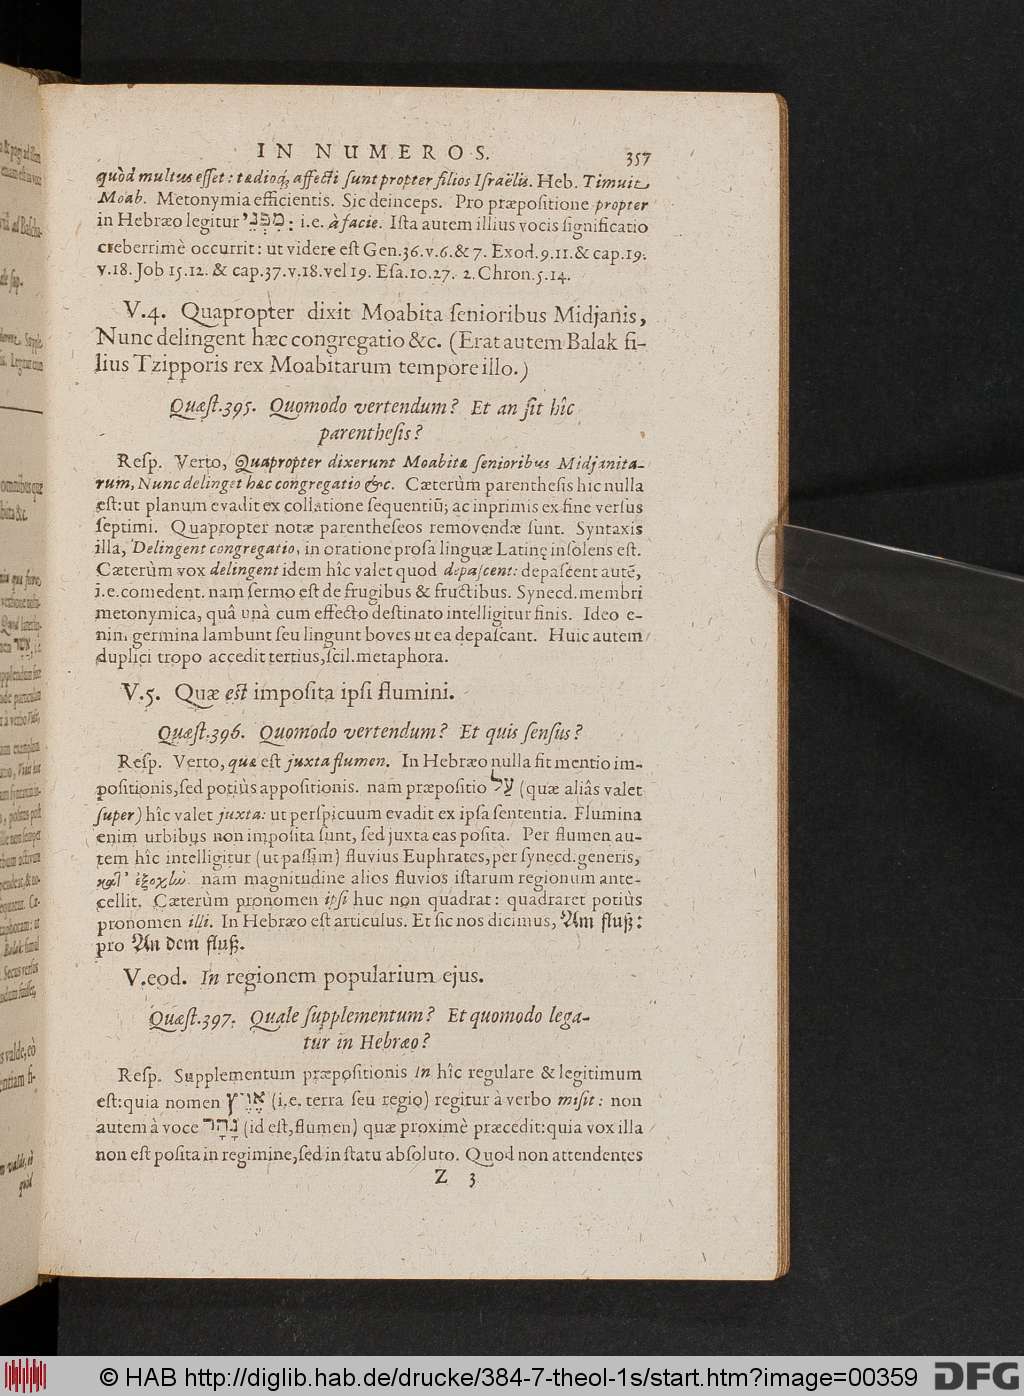 IN NUMEROS. 357
quòd multus esset: tædioq; affecti sunt propter filios Israëlis. Heb. Timuit
Moab. Metonymia efficientis. Sic deinceps. Pro præpositione propter
in Hebræo legitur מִפְּנֵי: i.e. à facie. Ista autem illius vocis significatio
creberrimè occurrit: ut videre est Gen.36.v.6.& 7. Exod.9.11.& cap.19.
v.18. Job 15.12. & cap.37.v.18.vel 19. Esa.10.27. 2.Chron.5.14.
V.4. Quapropter dixit Moabita senioribus Midjanis,
Nunc delingent hæc congregatio &c. (Erat autem Balak fi-
lius Tzipporis rex Moabitarum tempore illo.)
Quæst.395. Quomodo vertendum? Et an sit hîc
parenthesis?
Resp. Verto, Quapropter dixerunt Moabitæ senioribus Midjanita-
rum, Nunc delinget hæc congregatio &c. Cæterùm parenthesis hic nulla
est: ut planum evadit ex collatione sequentiũ; ac inprimis ex fine versus
septimi. Quapropter notæ parentheseos removendæ sunt. Syntaxis
illa, Delingent congregatio, in oratione prosa linguæ Latinę insolens est.
Cæterùm vox delingent idem hîc valet quod depascent: depascent autē,
i.e. comedent. nam sermo est de frugibus & fructibus. Synecd. membri
metonymica, quâ unà cum effecto destinato intelligitur finis. Ideo e-
nim germina lambunt seu lingunt boves ut ea depascant. Huic autem
duplici tropo accedit tertius, scil. metaphora.
V.5. Quæ est imposita ipsi flumini.
Quæst.396. Quomodo vertendum? Et quis sensus?
Resp. Verto, quæ est juxta flumen. In Hebræo nulla fit mentio im-
positionis, sed potiùs appositionis. nam præpositio עַל (quæ aliâs valet
super) hîc valet juxta: ut perspicuum evadit ex ipsa sententia. Flumina
enim urbibus non imposita sunt, sed juxta eas posita. Per flumen au-
tem hîc intelligitur (ut passim) fluvius Euphrates, per synecd. generis,
κατ' ἐξοχὴν. nam magnitudine alios fluvios istarum regionum ante-
cellit. Cæterùm pronomen ipsi huc non quadrat: quadraret potiùs
pronomen illi. In Hebræo est articulus. Et sic nos dicimus, Am fluß:
pro An dem fluß.
V.eod. In regionem popularium ejus.
Quæst.397. Quale supplementum? Et quomodo lega-
tur in Hebræo?
Resp. Supplementum præpositionis in hîc regulare & legitimum
est: quia nomen אֶרֶץ (i.e. terra seu regio) regitur à verbo misit: non
autem à voce נָהָר (id est, flumen) quæ proximè præcedit: quia vox illa
non est posita in regimine, sed in statu absoluto. Quod non attendentes
Z 3
© HAB http://diglib.hab.de/drucke/384-7-theol-1s/start.htm?image=00359
DFG